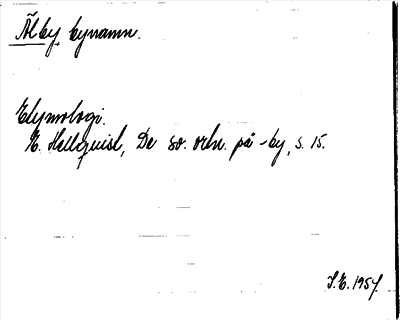 Älby, bynamn.
Etymologi.
E. Hellquist, De sv. ortn. på -by, s. 15.
S.E. 1957.